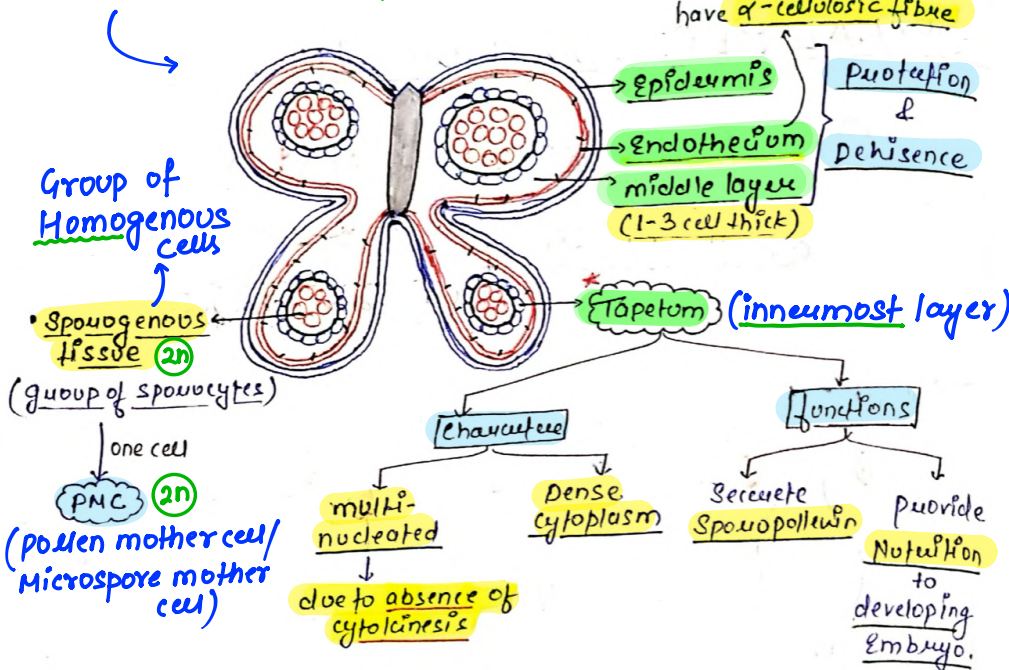 have α-cellulosic fibre
Epidermis
Endothecium
middle layer
(1-3 cell thick)
Protection
&
Dehisence
Group of
Homogenous
cells
• Sporogenous
tissue 2n
(group of sporocytes)
one cell
PMC 2n
(pollen mother cell/
Microspore mother
cell)
* Tapetum (innermost layer)
Character
multi-
nucleated
due to absence of
cytokinesis
Dense
cytoplasm
functions
Secrete
Sporopollenin
provide
Nutrition
to
developing
Embryo.